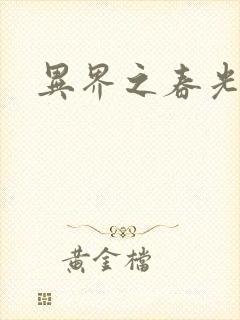 異界之春光
黃金檔